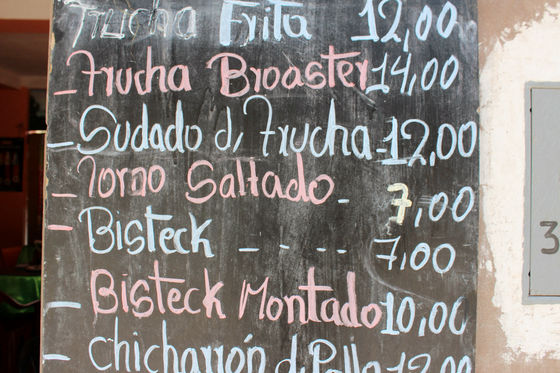 Trucha Frita 12,00
- Trucha Broaster 14,00
- Sudado d, Trucha - 12,00
- Lomo Saltado - 7,00
- Bisteck - - - - 7,00
- Bisteck Montado 10,00
- Chicharrón d, Pollo 12,00
3